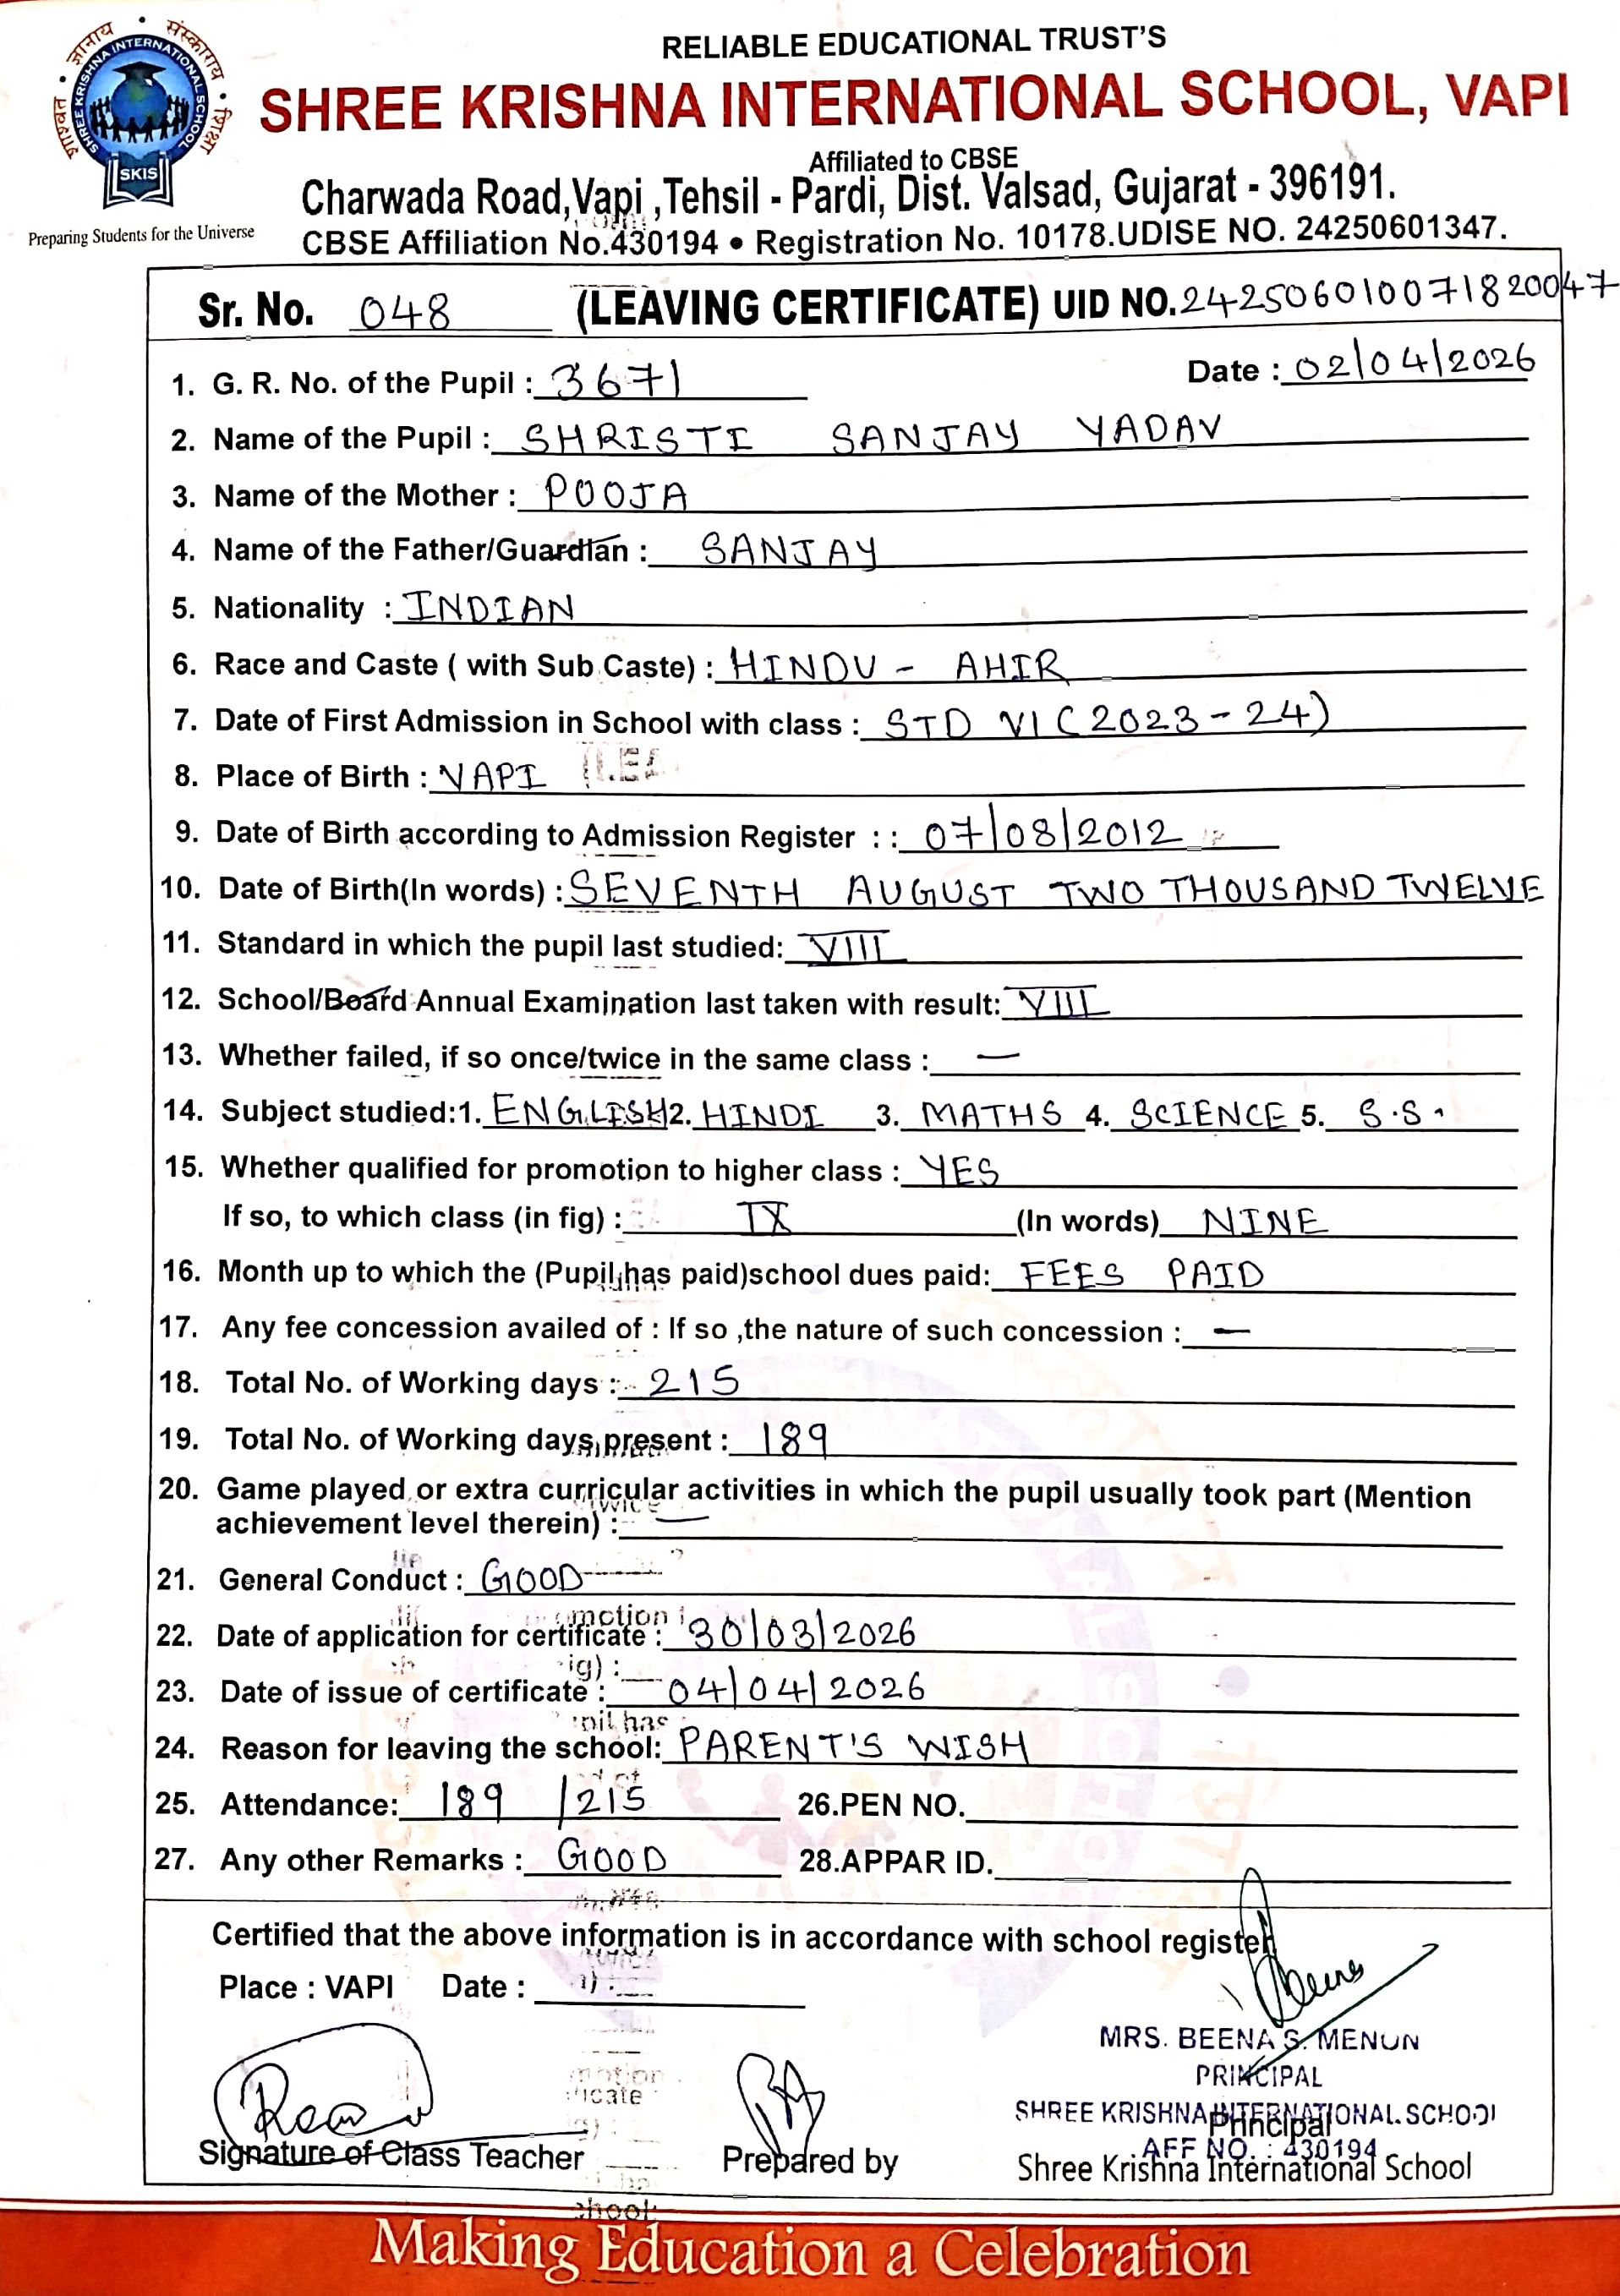 RELIABLE EDUCATIONAL TRUST'S
SHREE KRISHNA INTERNATIONAL SCHOOL, VAPI
Affiliated to CBSE
Charwada Road,Vapi ,Tehsil - Pardi, Dist. Valsad, Gujarat - 396191.
CBSE Affiliation No.430194 • Registration No. 10178.UDISE NO. 24250601347.
ज्ञानाय • संस्काराय • शिक्षा
SHREE KRISHNA INTERNATIONAL SCHOOL
SKIS
Preparing Students for the Universe
Sr. No. 048 (LEAVING CERTIFICATE) UID NO.242506010071820047
1. G. R. No. of the Pupil : 3671 Date : 02/04/2026
2. Name of the Pupil : SHRISTI SANJAY YADAV
3. Name of the Mother : POOJA
4. Name of the Father/Guardian : SANJAY
5. Nationality : INDIAN
6. Race and Caste ( with Sub Caste) : HINDU - AHIR
7. Date of First Admission in School with class : STD VI (2023-24)
8. Place of Birth : VAPI
9. Date of Birth according to Admission Register : : 07/08/2012
10. Date of Birth(In words) : SEVENTH AUGUST TWO THOUSAND TWELVE
11. Standard in which the pupil last studied: VIII
12. School/Board Annual Examination last taken with result: VIII
13. Whether failed, if so once/twice in the same class : —
14. Subject studied:1. ENGLISH 2. HINDI 3. MATHS 4. SCIENCE 5. S.S.
15. Whether qualified for promotion to higher class : YES
If so, to which class (in fig) : IX (In words) NINE
16. Month up to which the (Pupil has paid)school dues paid: FEES PAID
17. Any fee concession availed of : If so ,the nature of such concession : —
18. Total No. of Working days : 215
19. Total No. of Working days present : 189
20. Game played or extra curricular activities in which the pupil usually took part (Mention
achievement level therein) : —
21. General Conduct : GOOD
22. Date of application for certificate : 30/03/2026
23. Date of issue of certificate : 04/04/2026
24. Reason for leaving the school: PARENT'S WISH
25. Attendance: 189 /215 26.PEN NO.
27. Any other Remarks : GOOD 28.APPAR ID.
Certified that the above information is in accordance with school register
Place : VAPI Date :
MRS. BEENA S. MENON
PRINCIPAL
SHREE KRISHNA INTERNATIONAL SCHOOL
Principal
AFF NO. : 430194
Signature of Class Teacher Prepared by Shree Krishna International School
Making Education a Celebration